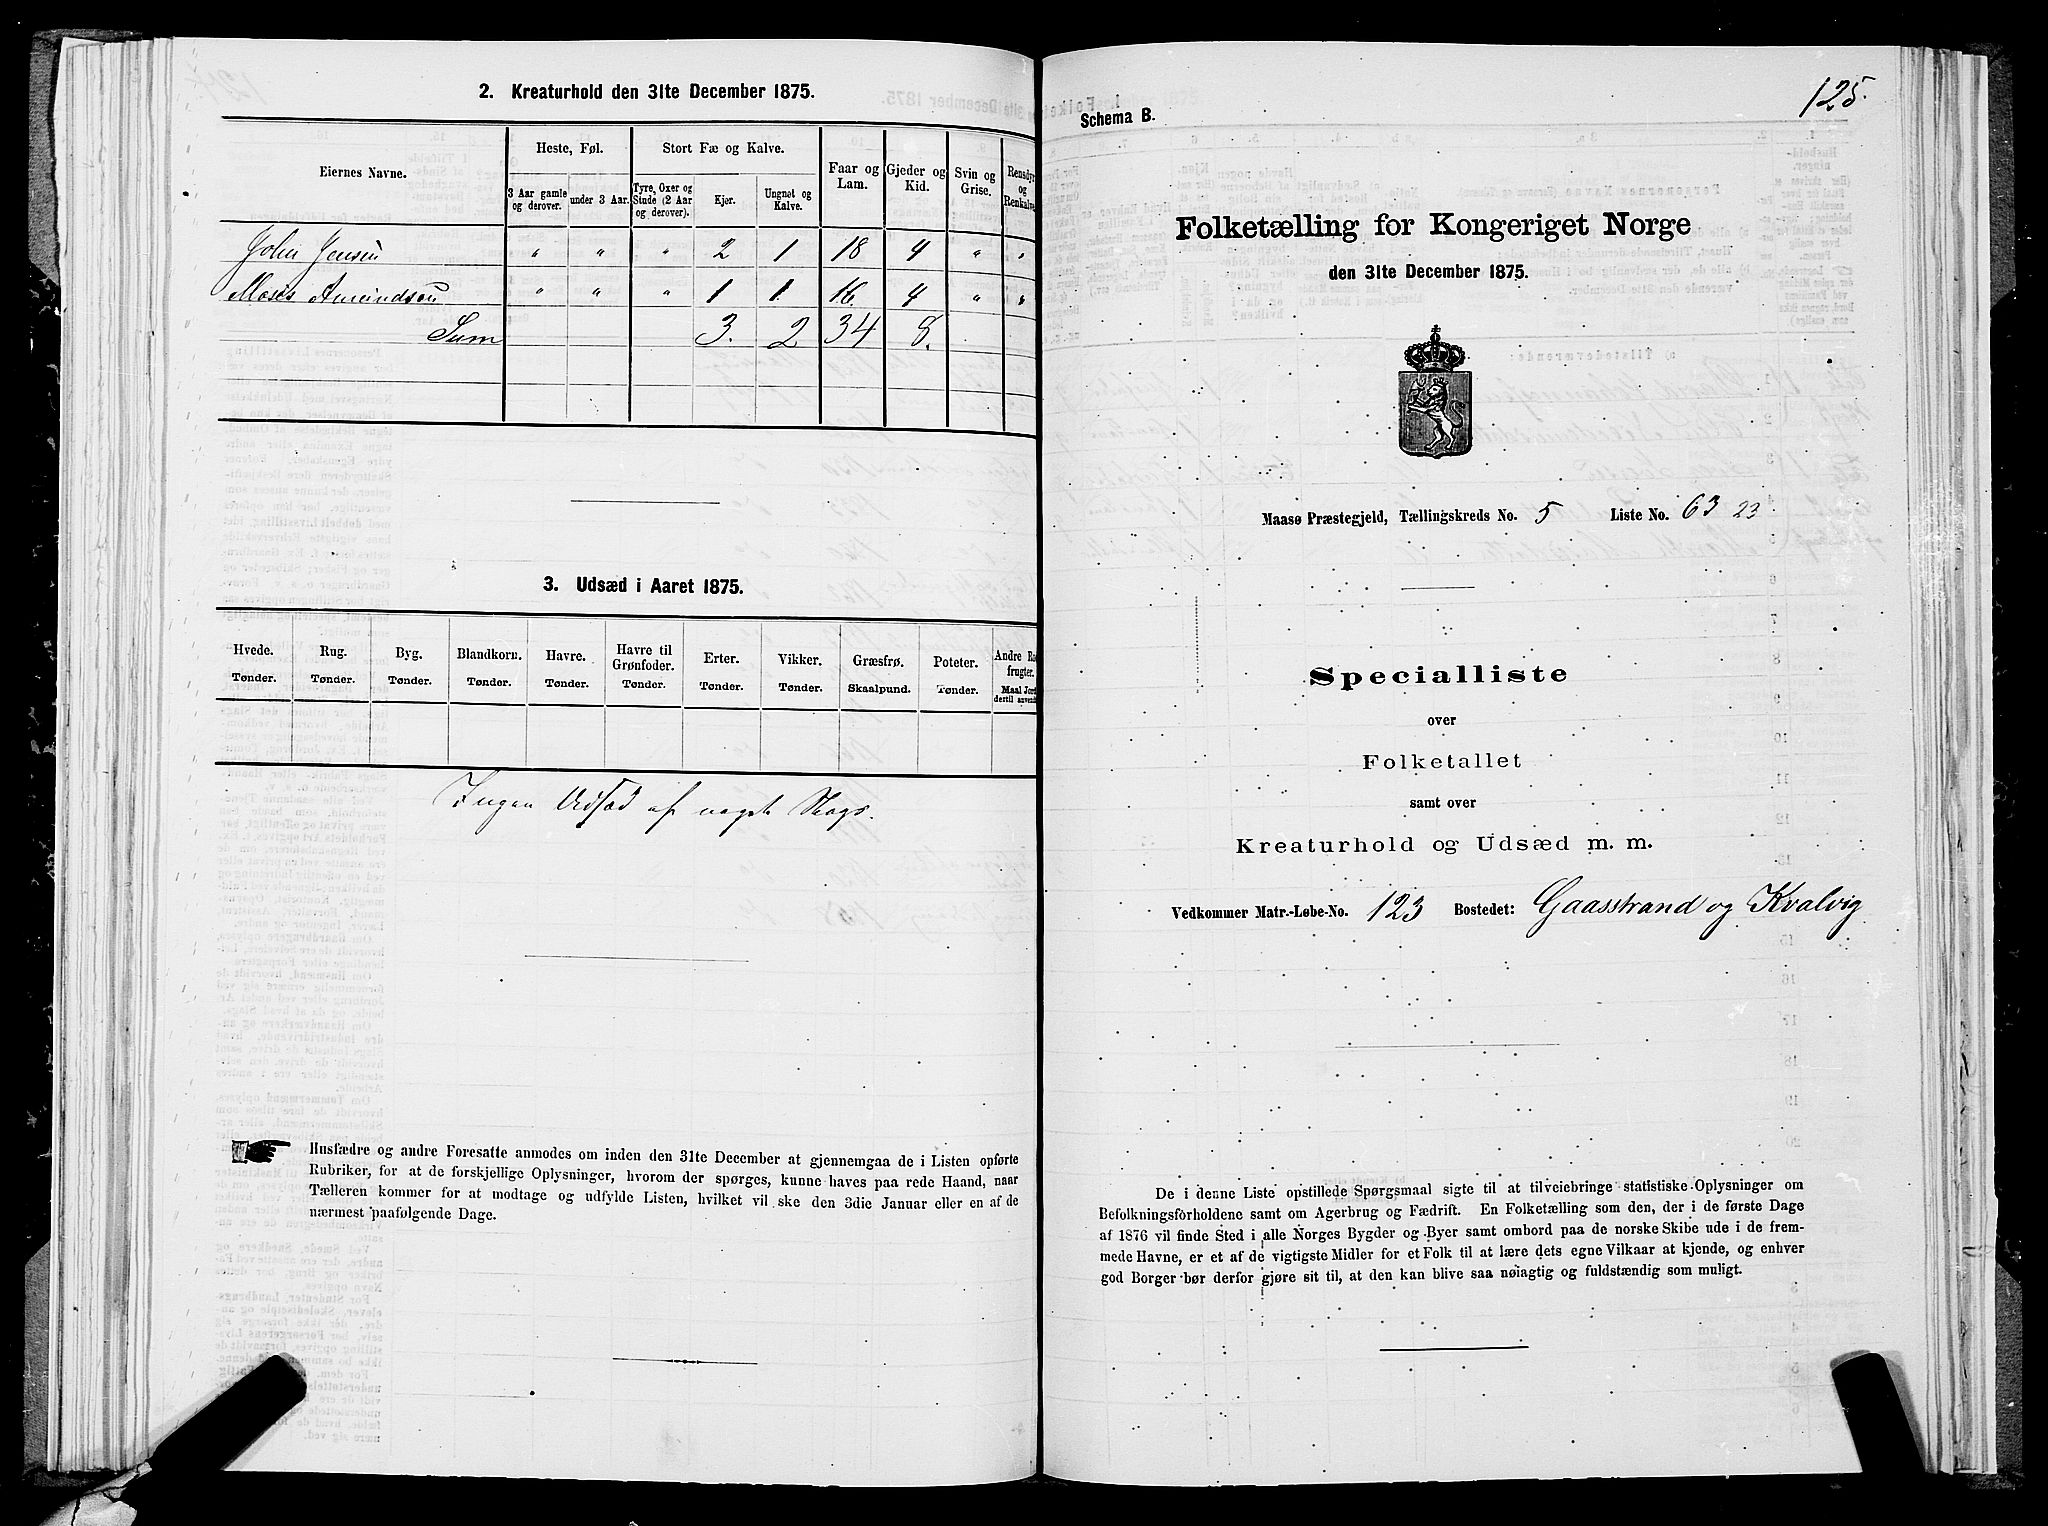 2. Kreaturhold den 31te December 1875.
Eiernes Navne.
Heste, Føl.
Stort Fæ og Kalve.
Faar og Lam.
Gjeder og Kid.
Svin og Grise.
Rensdyr og Renkalve
3 Aar gamle og derover.
under 3 Aar.
Tyre, Oxer og Stude (2 Aar og derover).
Kjør.
Ungnøt og Kalve.
John Jensen " " " 2 1 18 4 " "
Moses Amundsen " " " 1 1 16 4 " "
Sum 3. 2 34 8.
3. Udsæd i Aaret 1875.
Hvede. Tønder.
Rug. Tønder.
Byg. Tønder.
Blandkorn. Tønder.
Havre. Tønder.
Havre til Grønfoder. Tønder.
Erter. Tønder.
Vikker. Tønder.
Græsfrø. Skaalpund.
Poteter. Tønder.
Andre Ro frugter. Maal Jord dertil anvend
Ingen Udsæd af noget Slags.
Husfædre og andre Foresatte anmodes om inden den 31te December at gjennemgaa de i Listen opførte
Rubriker, for at de forskjellige Oplysninger, hvorom der spørges, kunne haves paa rede Haand, naar
Tælleren kommer for at modtage og udfylde Listen, hvilket vil ske den 3die Januar eller en af de
nærmest paafølgende Dage.
125.
Schema B.
Folketælling for Kongeriget Norge
den 31te December 1875.
Maasø Præstegjeld, Tællingskreds No. 5 Liste No. 63 23
Specialliste
over
Folketallet
samt over
Kreaturhold og Udsæd m. m.
Vedkommer Matr.-Løbe-No. 123 Bostedet: Gaasstrand og Kvalvig
De i denne Liste opstillede Spørgsmaal sigte til at tilveiebringe statistiske Oplysninger om
Befolkningsforholdene samt om Agerbrug og Fædrift. En Folketælling som den, der i de første Dage
af 1876 vil finde Sted i alle Norges Bygder og Byer samt ombord paa de norske Skibe ude i de frem-
mede Havne, er et af de vigtigste Midler for et Folk til at lære dets egne Vilkaar at kjende, og enhver
god Borger bør derfor gjøre sit til, at den kan blive saa nøiagtig og fuldstændig som muligt.